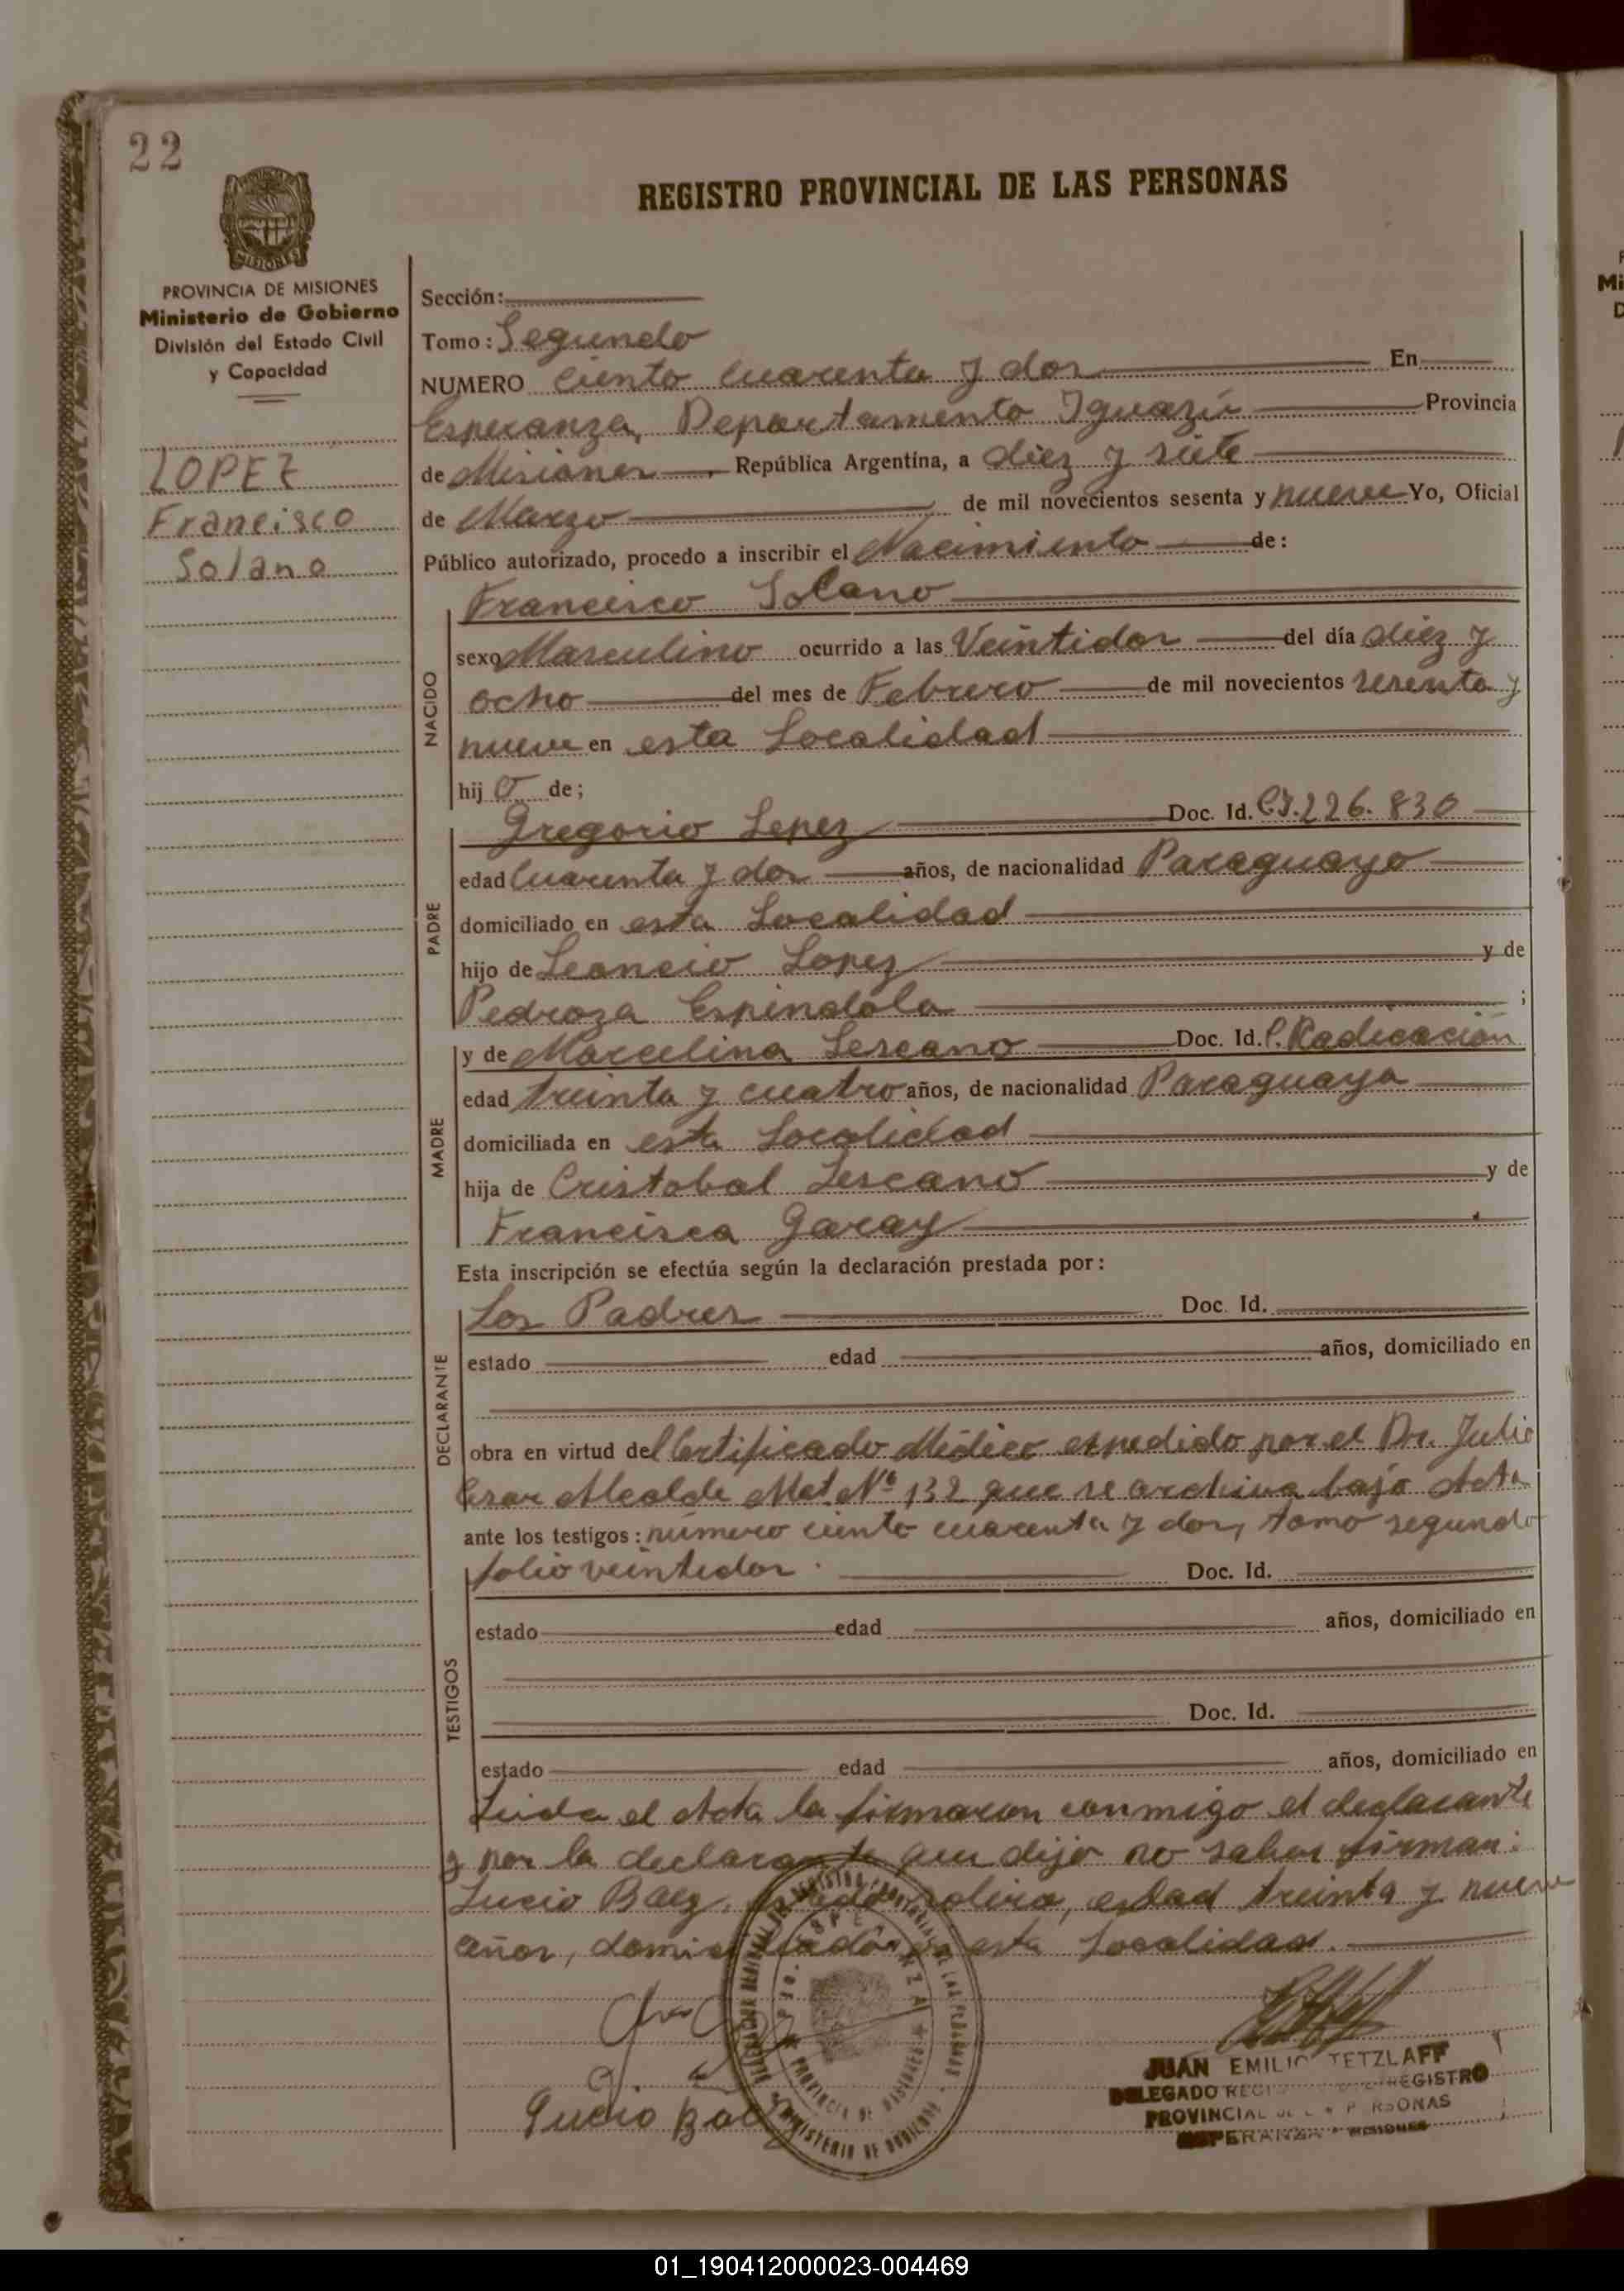 22
REGISTRO PROVINCIAL DE LAS PERSONAS
MISIONES
PROVINCIA DE MISIONES
Ministerio de Gobierno
División del Estado Civil
y Capacidad
LOPEZ
Francisco
Solano
Sección:
Tomo: Segundo
NUMERO Ciento Cuarenta y dos En
Esperanza, Departamento Iguazú Provincia
de Misiones, República Argentina, a diez y siete
de Marzo de mil novecientos sesenta y nueve Yo, Oficial
Público autorizado, procedo a inscribir el Nacimiento de:
Francisco Solano
NACIDO
sexo Masculino ocurrido a las Veintidos del día diez y
ocho del mes de Febrero de mil novecientos sesenta y
nueve en esta Localidad
hij o de;
Gregorio Lepez Doc. Id. C.I. 226.830
PADRE
edad Cuarenta y dos años, de nacionalidad Paraguayo
domiciliado en esta Localidad
hijo de Leoncio Lopez y de
Pedroza Espindola ;
y de Marcelina Lescano Doc. Id. C. Radicación
MADRE
edad treinta y cuatro años, de nacionalidad Paraguaya
domiciliada en esta Localidad
hija de Cristobal Lescano y de
Francisca Garay
Esta inscripción se efectúa según la declaración prestada por:
Los Padres Doc. Id.
DECLARANTE
estado edad años, domiciliado en
obra en virtud del Certificado Médico expedido por el Dr. Julio
Cesar Alcalde Mat. Nº 132 que se archiva bajo Acta
ante los testigos: número ciento cuarenta y dos, tomo segundo
folio veintidos. Doc. Id.
TESTIGOS
estado edad años, domiciliado en
Doc. Id.
estado edad años, domiciliado en
Leida el Acta la firmaron conmigo el declarante
y por la declarante que dijo no saber firmar:
Lucio Baez, estado soltero, edad treinta y nueve
años, domiciliado en esta Localidad.
Lucio Baez
JUAN EMILIO TETZLAFF
DELEGADO REGISTRO
PROVINCIAL DE LAS PERSONAS
ESPERANZA - MISIONES
PROVINCIA DE MISIONES
MINISTERIO DE GOBIERNO
01_190412000023-004469